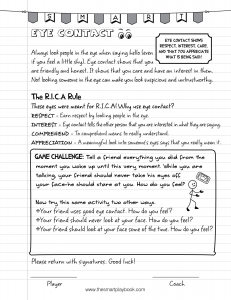 SMART
EYE CONTACT
EYE CONTACT SHOWS
RESPECT, INTEREST, CARE,
AND THAT YOU APPRECIATE
WHAT IS BEING SAID!
Always look people in the eye when saying hello (even
if you feel a little shy). Eye contact shows that you
are friendly and honest. It shows that you care and have an interest in them.
Not looking someone in the eye can make you look suspicious and untrustworthy.
The R.I.C.A Rule
These eyes were meant for R.I.C.A! Why use eye contact?
RESPECT - Earn respect by looking people in the eye.
INTEREST - Eye contact tells the other person that you are interested in what they are saying.
COMPREHEND - To comprehend means to really understand.
APPRECIATION - A meaningful look into someone's eyes says that you really mean it.
GAME CHALLENGE: Tell a friend everything you did from the
moment you woke up until this very moment. While you are
talking, your friend should never take his eyes off
your face-he should stare at you. How do you feel?
Now try this same activity two other ways.
Your friend uses good eye contact. How do you feel?
Your friend should never look at your face. How do you feel?
Your friend should look at your face some of the time. How do you feel?
Please return with signatures. Good luck!
Player
Coach
www.thesmartplaybook.com